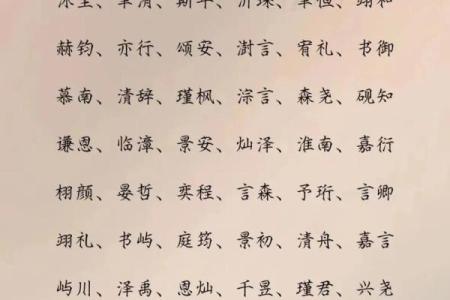 赫钧、亦行、颂安、澍言、宥礼、书御
慕南、清辞、瑾枫、淙言、森尧、砚知
谦恩、临漳、景安、灿泽、淮南、嘉衍
栩颜、晏哲、奕程、言森、予珩、言卿
翊礼、书屿、庭筠、景初、清舟、嘉言
屿川、泽禹、恩灿、千昱、瑾君、兴尧